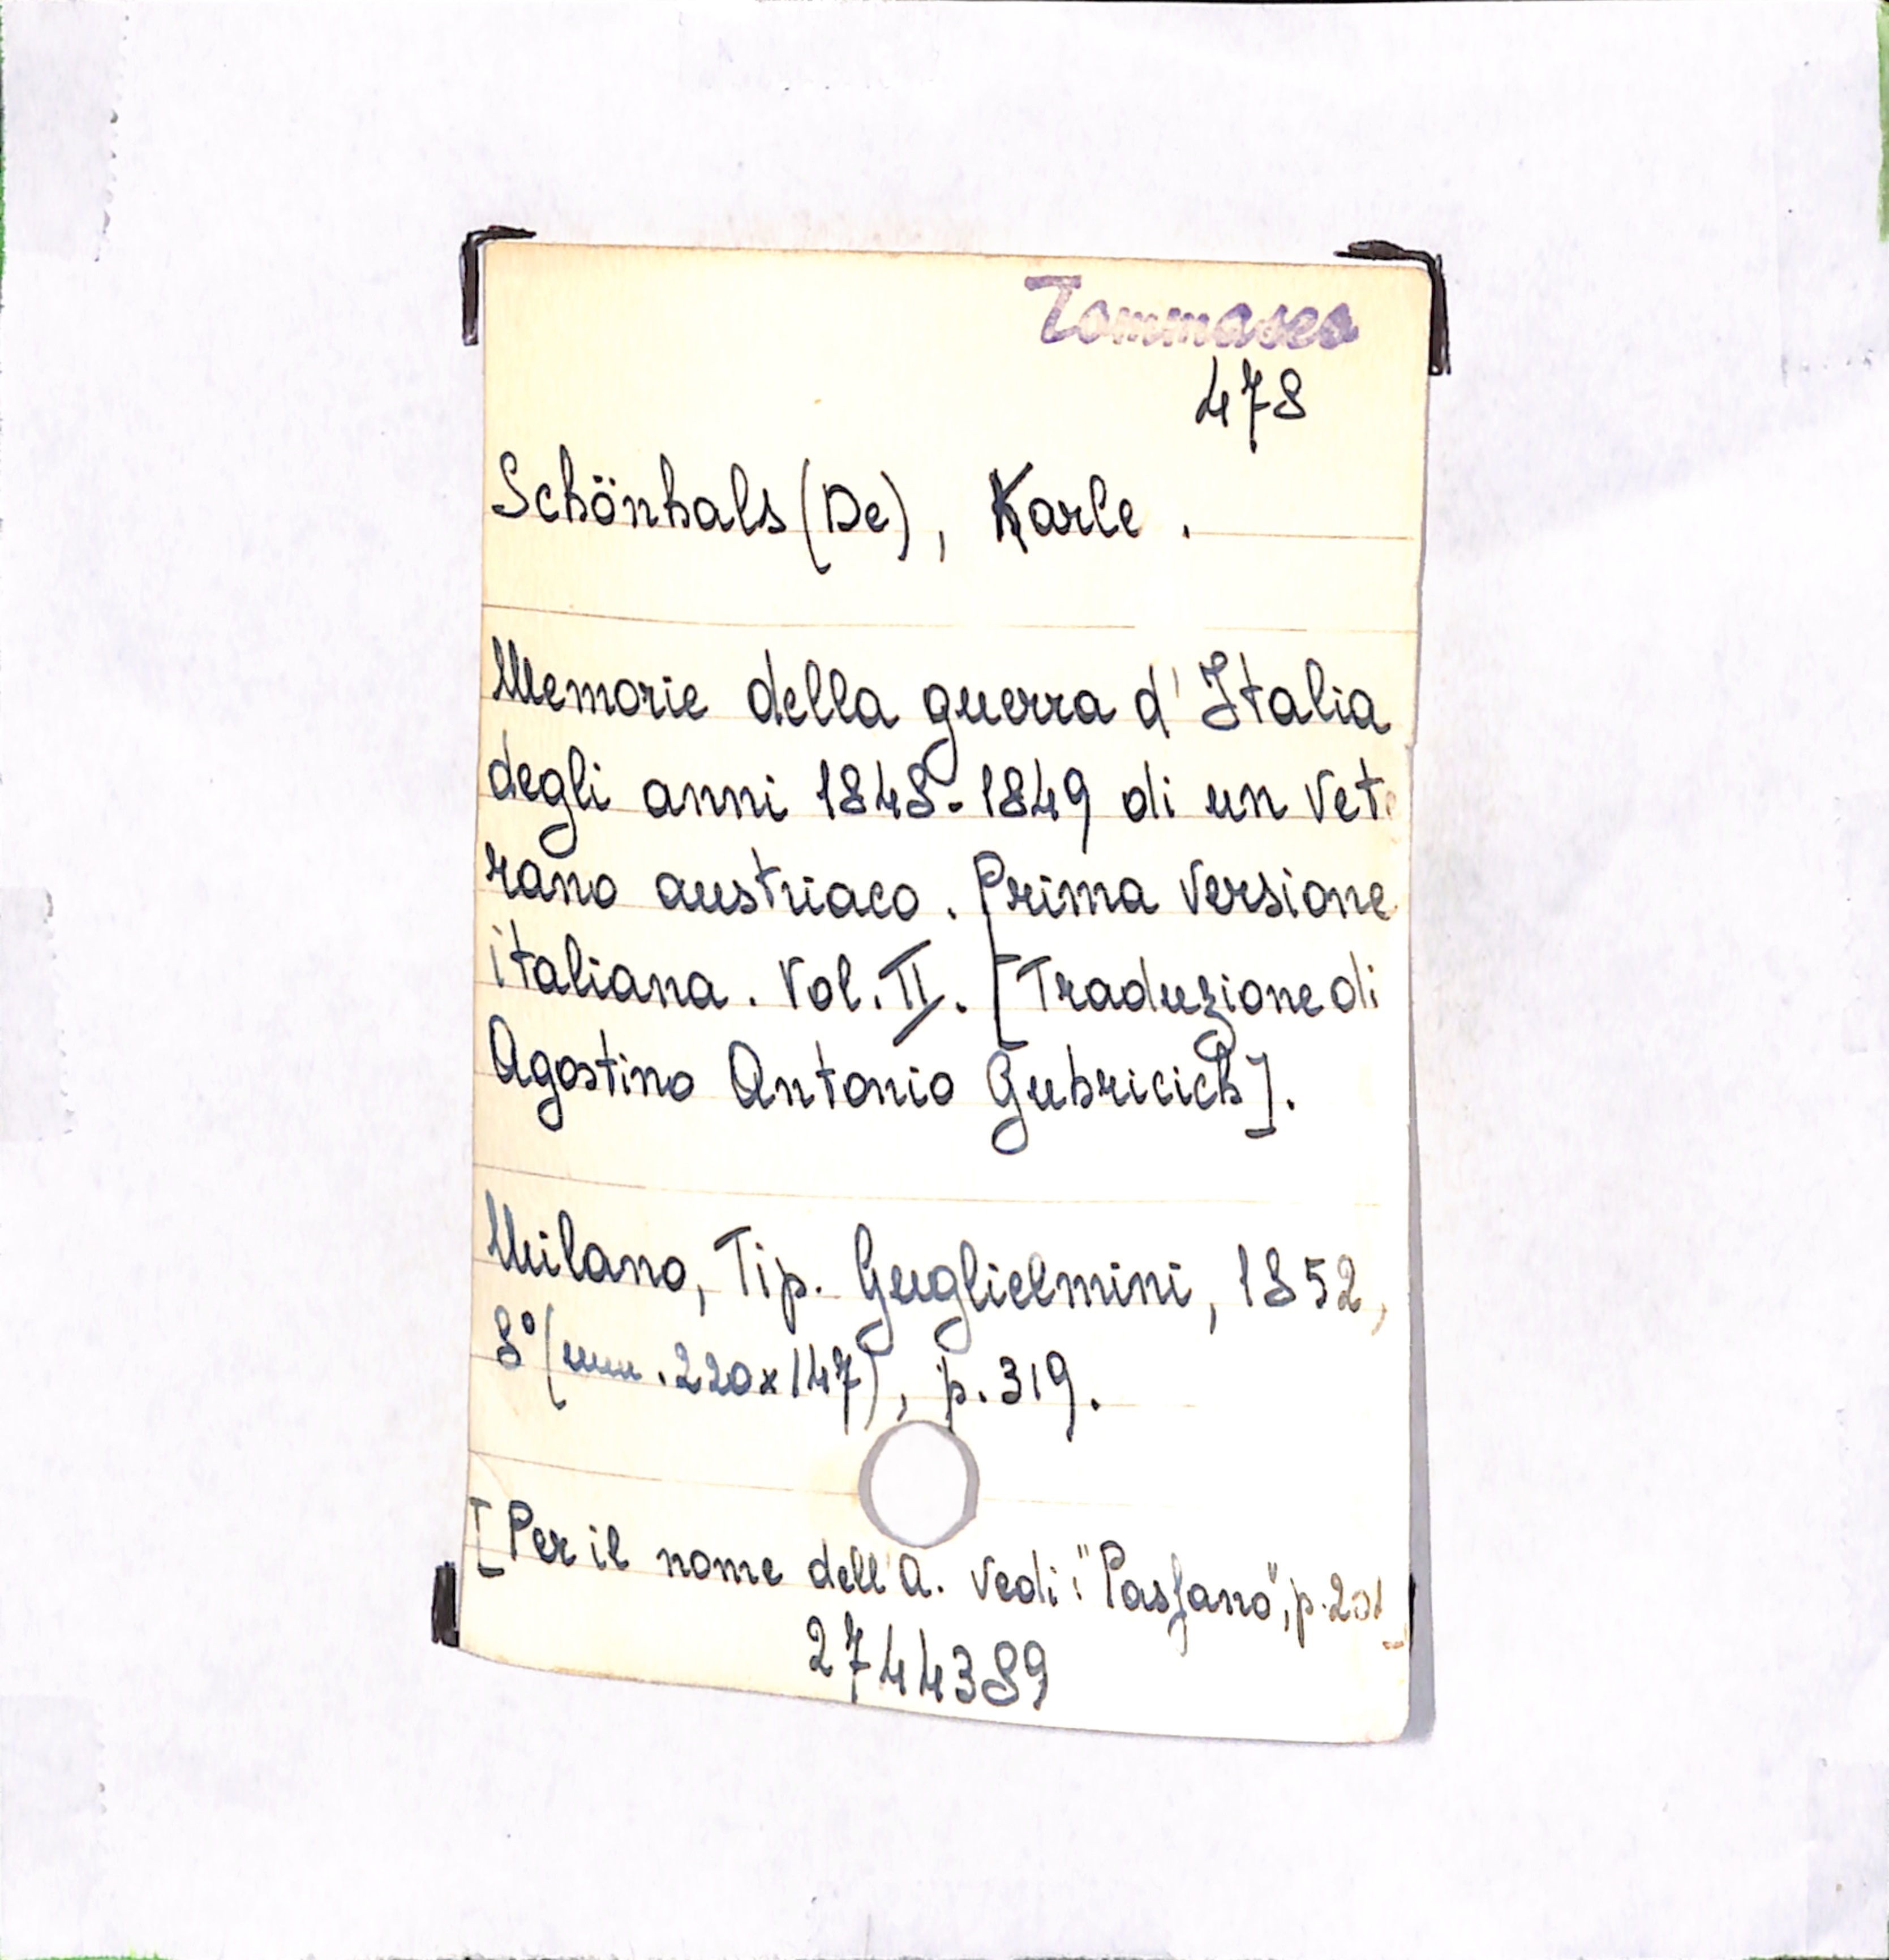 Tommaseo
478
Schönhals (De), Karle.
Memorie della guerra d'Italia
degli anni 1848-1849 di un vete
rano austriaco. Prima versione
italiana. Vol. II. [Traduzione di
Agostino Antonio Gubricich].
Milano, Tip. Guglielmini, 1852,
8° (mm. 220x147), p. 319.
[Per il nome dell'A. vedi: "Passano", p. 201]
2744389